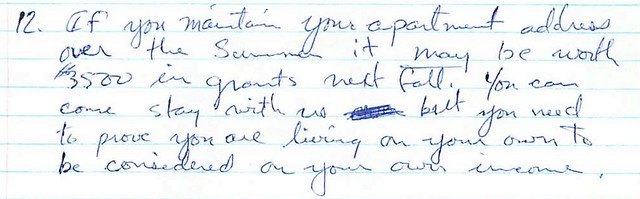 12. If you maintain your apartment address
over the Summer it may be worth
$3500 in grants next Fall. You can
come stay with us but you need
to prove you are living on your own to
be considered on your own income.